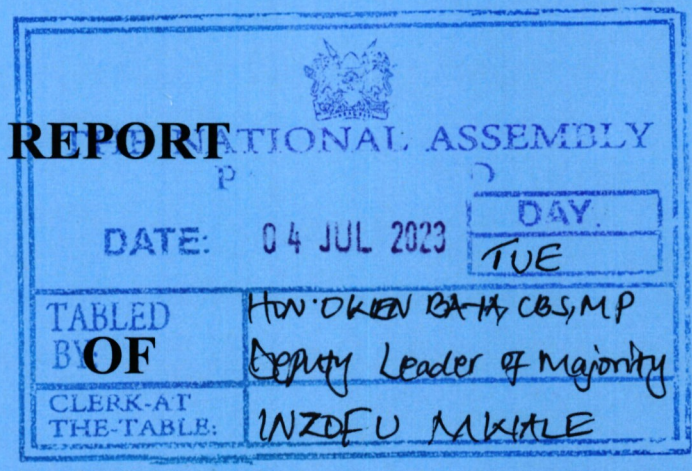 REPORT
THE NATIONAL ASSEMBLY
DATE: 04 JUL 2023
DAY.
TUE
TABLED BY:
HON. BAYA, CBS, MP
Deputy Leader of Majority
OF
CLERK-AT
THE-TABLE:
INZOFU MWALE